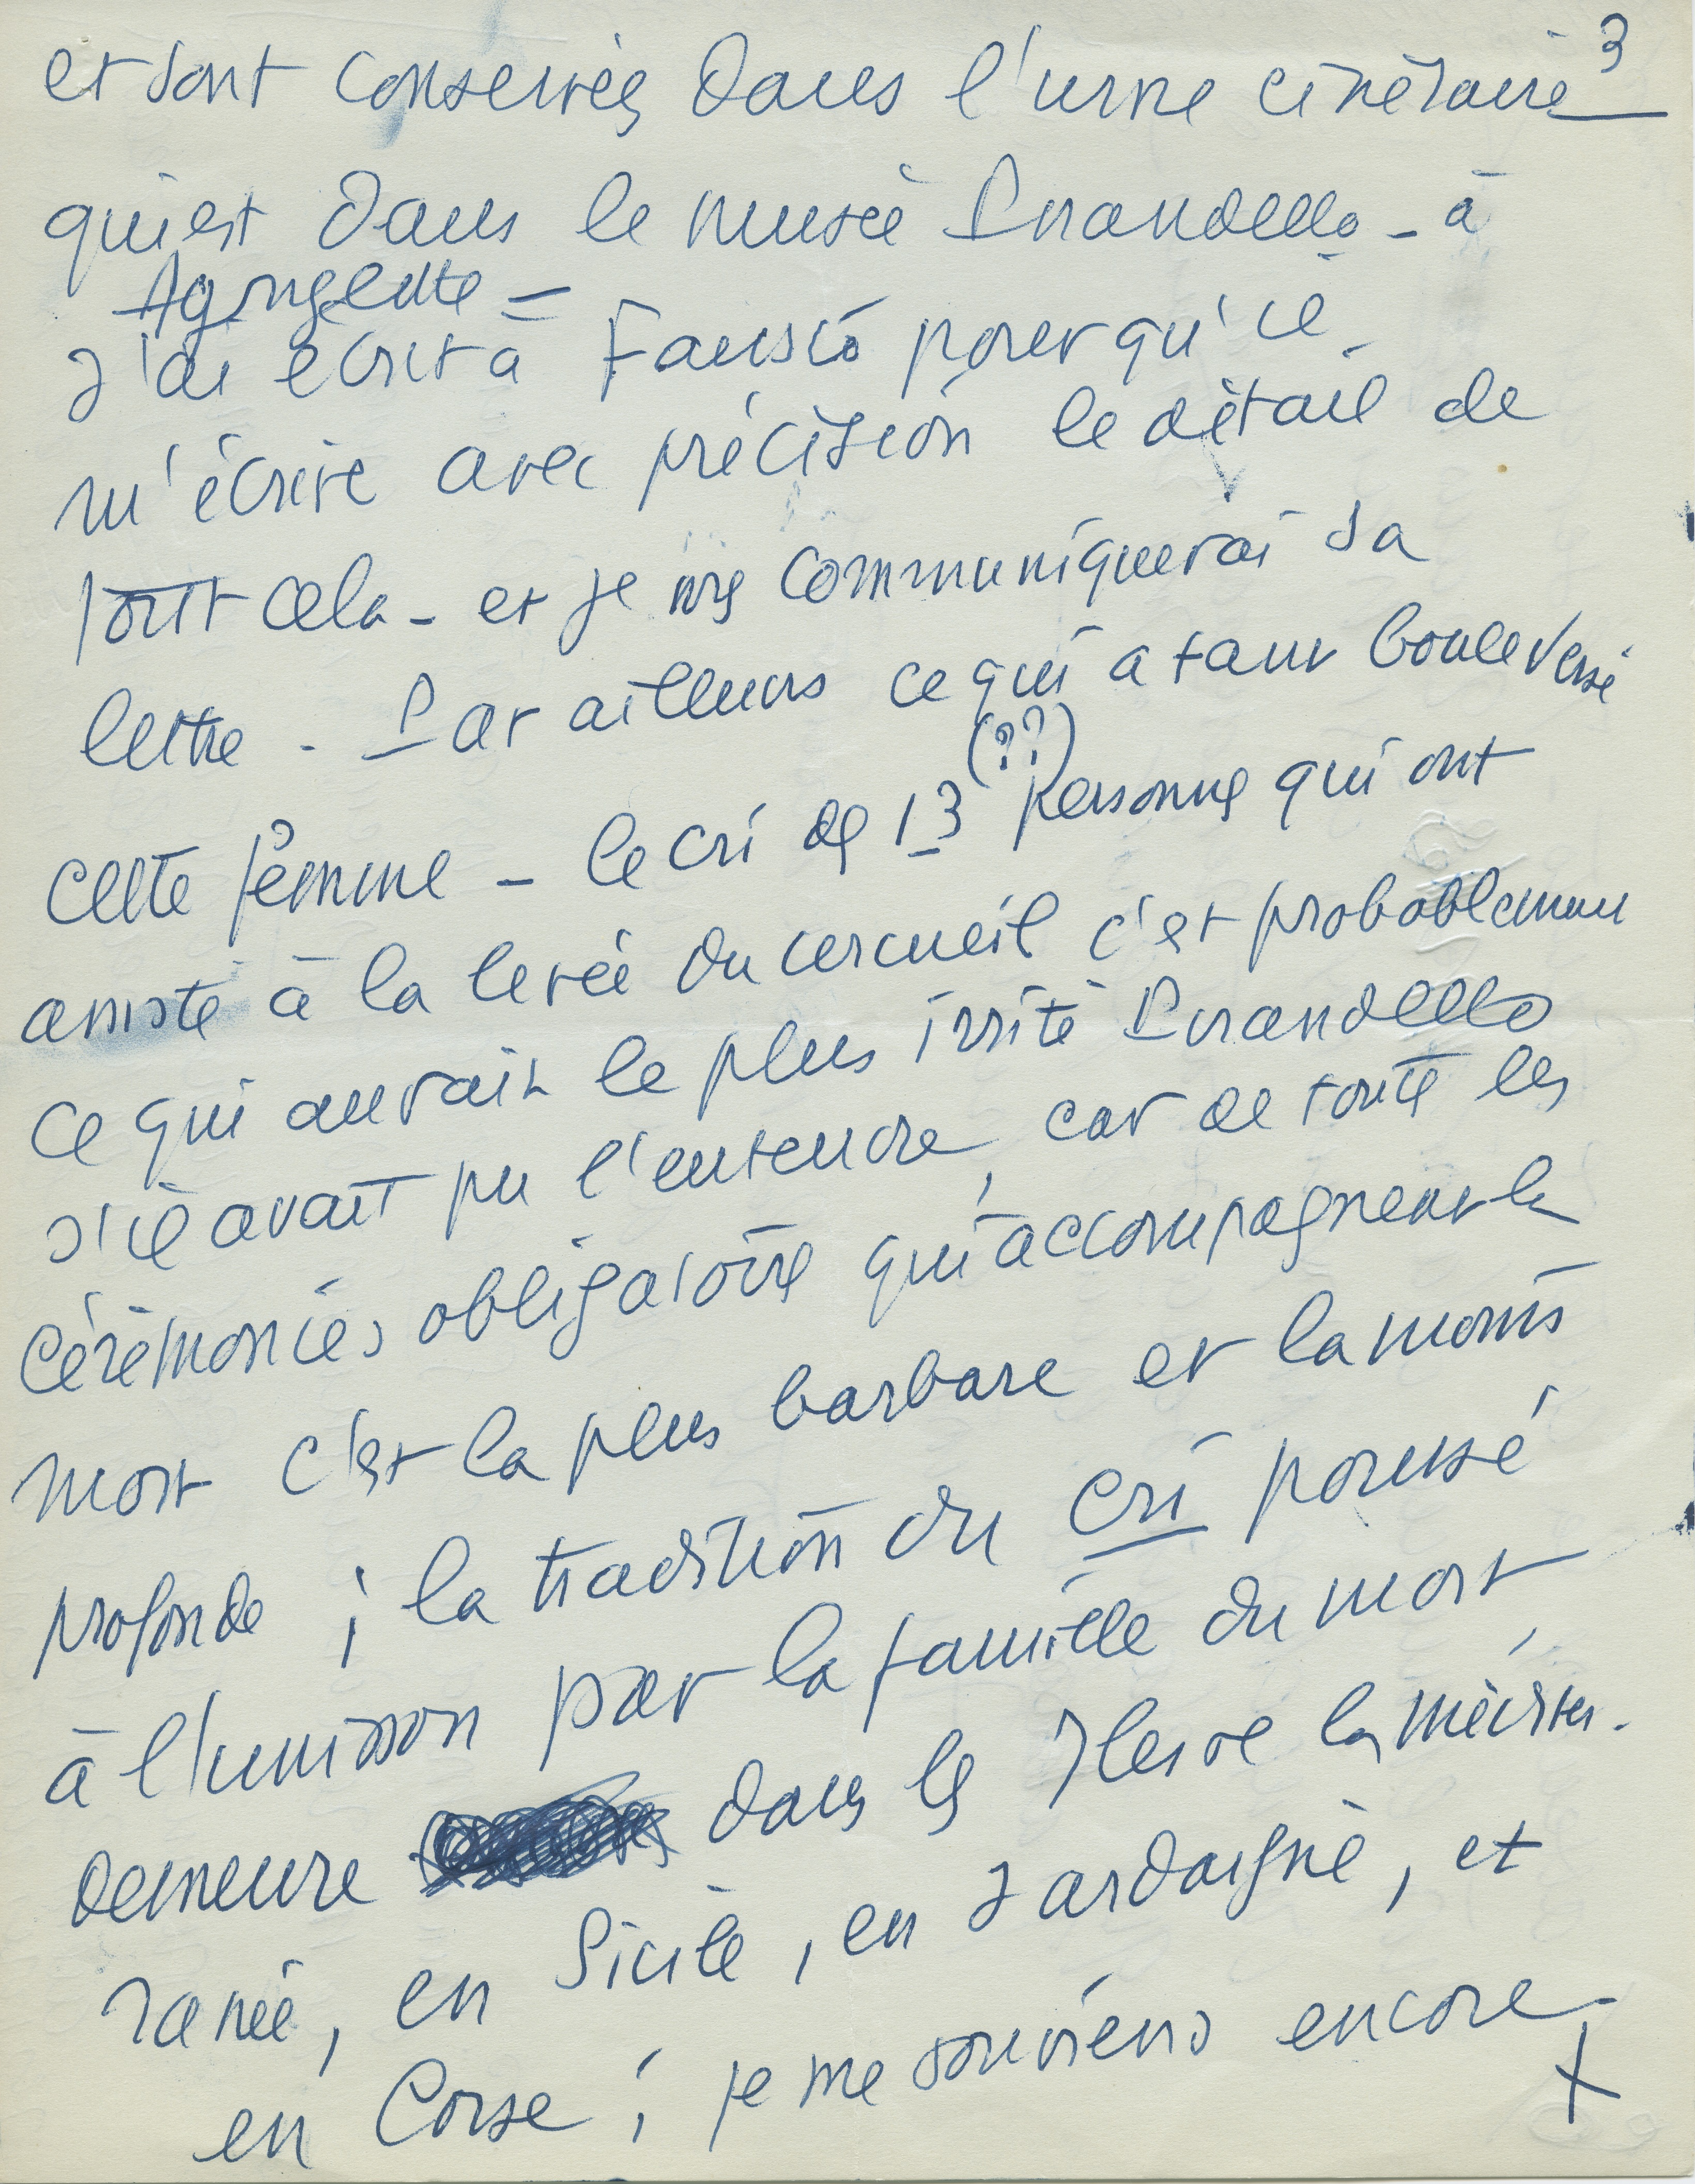 3
et sont conservés dans l'urne cinéraire
qui est dans le musée Pirandello - à
Agrigente =
J'ai écrit à Fausto pour qu'il
m'écrive avec précision le détail de
tout cela - et je vs communiquerai sa
lettre - Par ailleurs ce qui a tant bouleversé
(??)
cette femme - le cri des 13 personnes qui ont
assisté à la levée du cercueil c'est probablement
ce qui aurait le plus irrité Pirandello
s'il avait pu l'entendre, car de toute les
cérémonies obligatoires qui accompagnent la
mort c'est la plus barbare et la moins
profonde ; la tradition du cri poussé
à l'unisson par la famille du mort,
demeure dans les Iles de la méditer-
ranée, en Sicile, en Sardaigne, et
en Corse ; je me souviens encore
+